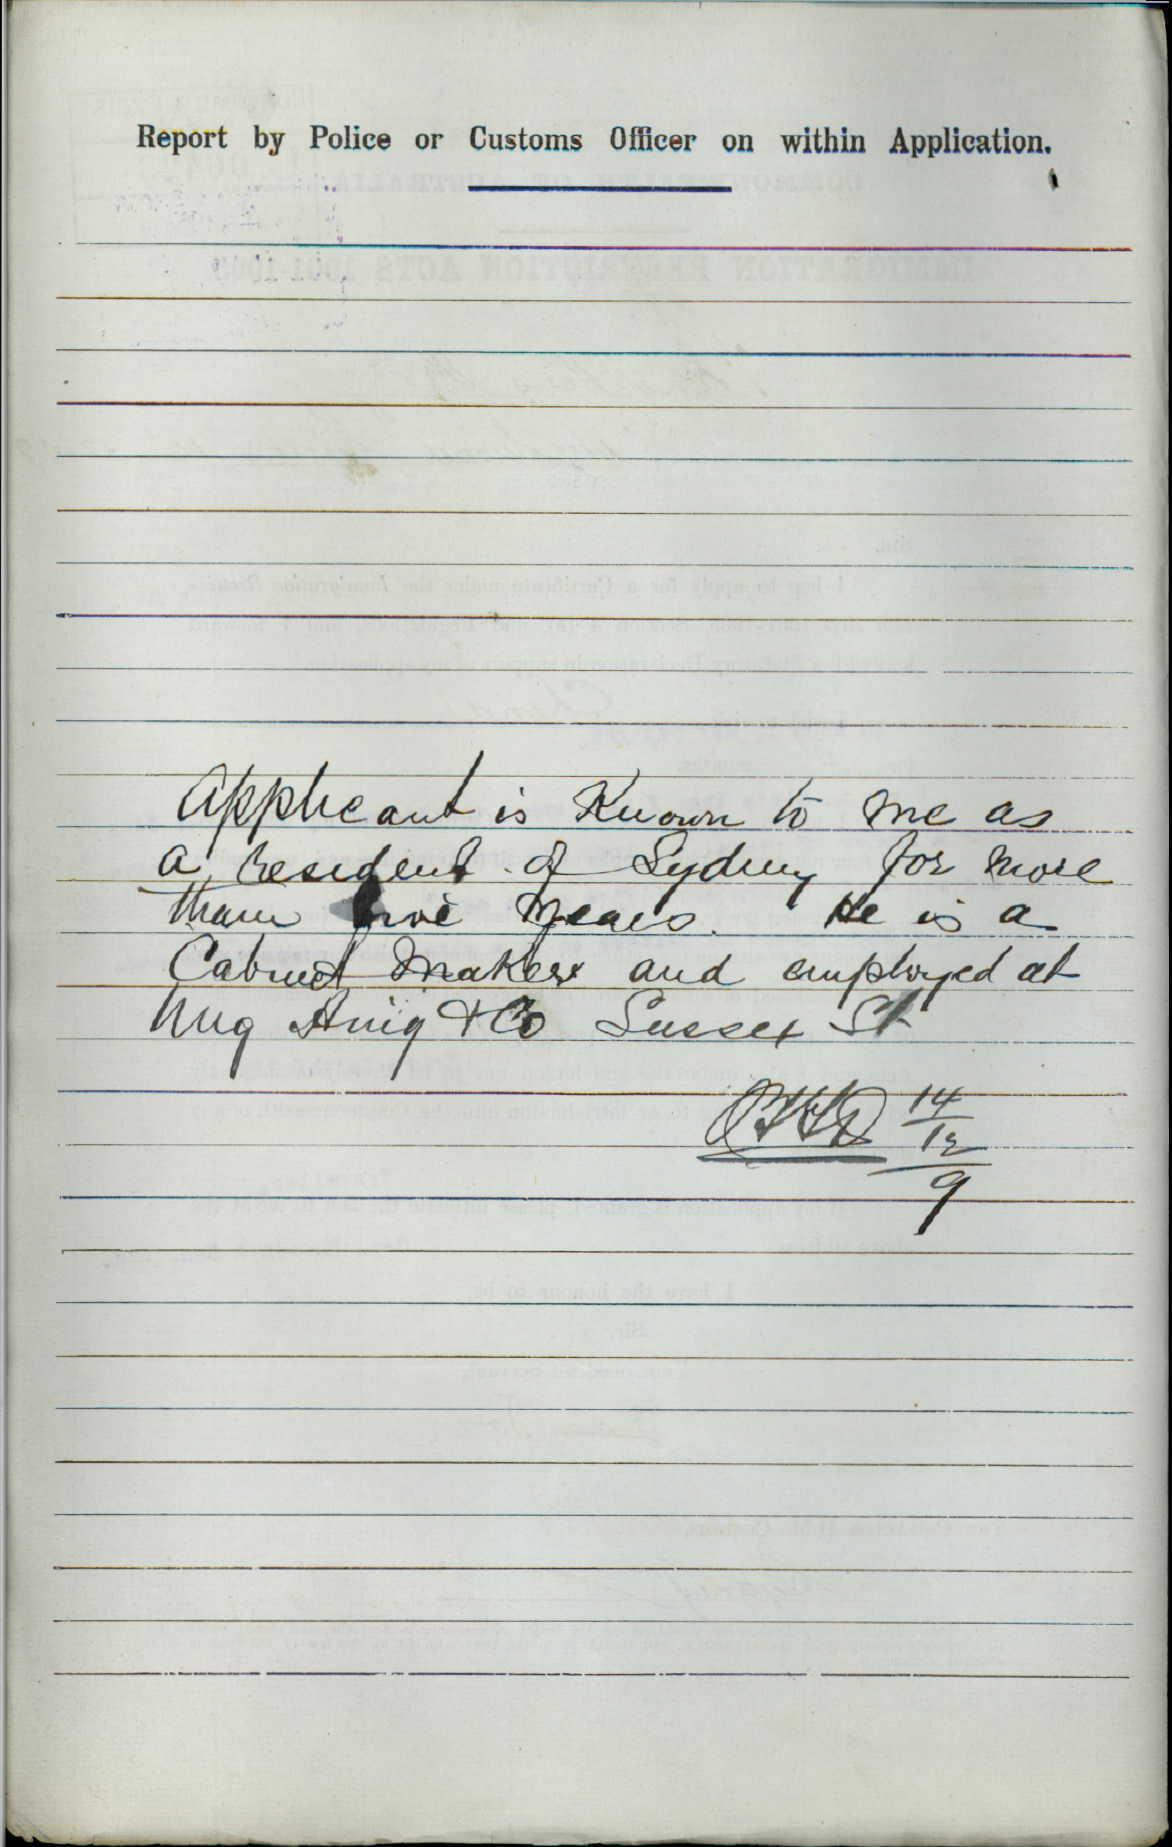 Report by Police or Customs Officer on within Application.
Applicant is Known to me as
a resident of Sydney for more
than five years. He is a
Cabinet Maker and employed at
& Co Sussex St
14
12
9